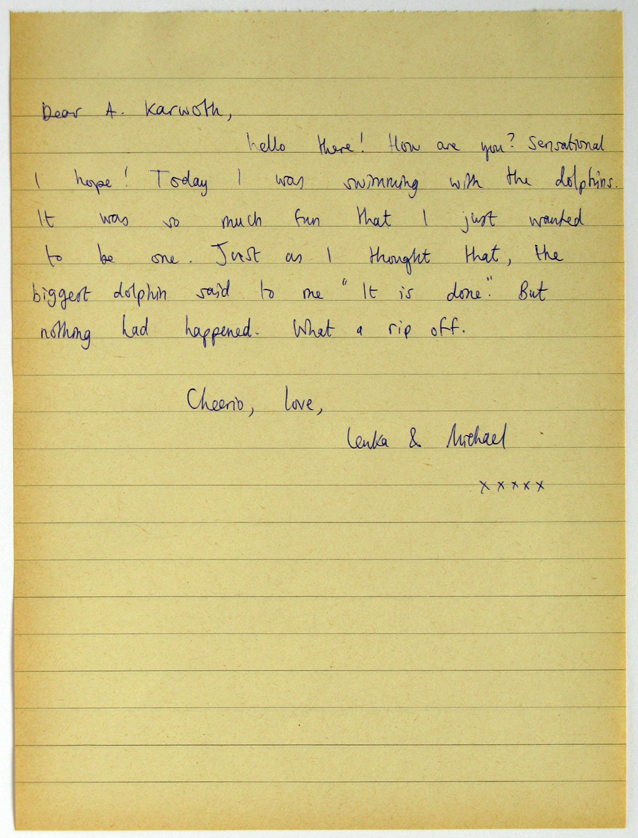 Dear A. Karwoth,
hello there! How are you? Sensational
I hope! Today I was swimming with the dolphins.
It was so much fun that I just wanted
to be one. Just as I thought that, the
biggest dolphin said to me "It is done." But
nothing had happened. What a rip off.
Cheerio, love,
Lenka & Michael
xxxxx